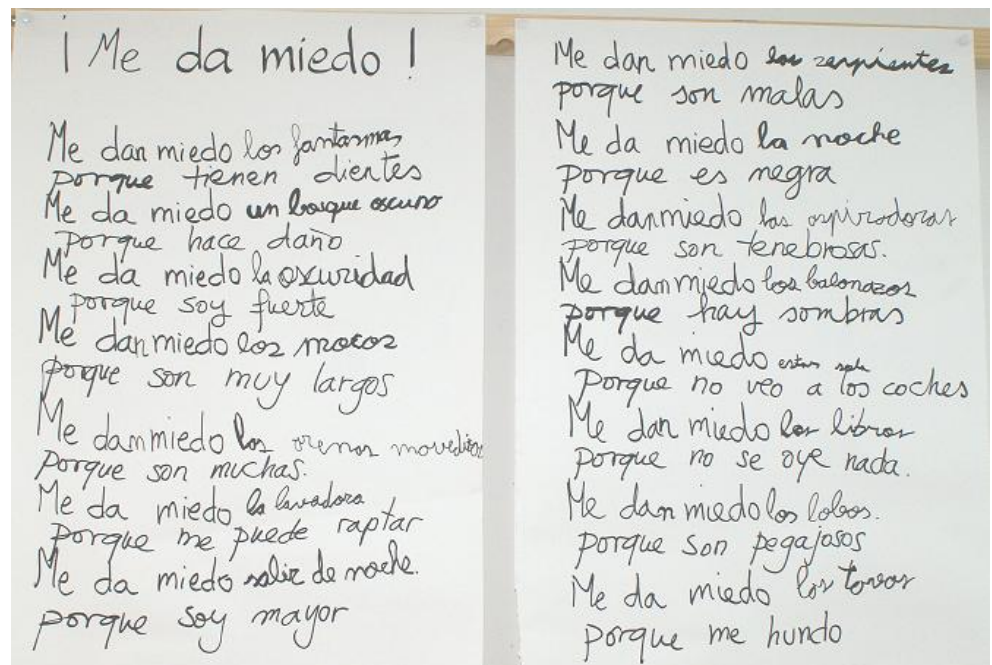 ¡Me da miedo!
Me dan miedo los fantasmas
porque tienen dientes
Me da miedo un bosque oscuro
porque hace daño
Me da miedo la oscuridad
porque soy fuerte
Me dan miedo los mocos
porque son muy largos
Me dan miedo las arenas movedizas
porque son muchas.
Me da miedo la lavadora
porque me puede raptar
Me da miedo salir de noche.
porque soy mayor
Me dan miedo las serpientes
porque son malas
Me da miedo la noche
porque es negra
Me dan miedo las aspiradoras
porque son tenebrosas.
Me dan miedo los balonazos
porque hay sombras
Me da miedo estar sola
porque no veo a los coches
Me dan miedo los libros
porque no se oye nada.
Me dan miedo los lobos.
porque son pegajosos
Me da miedo los toros
porque me hundo